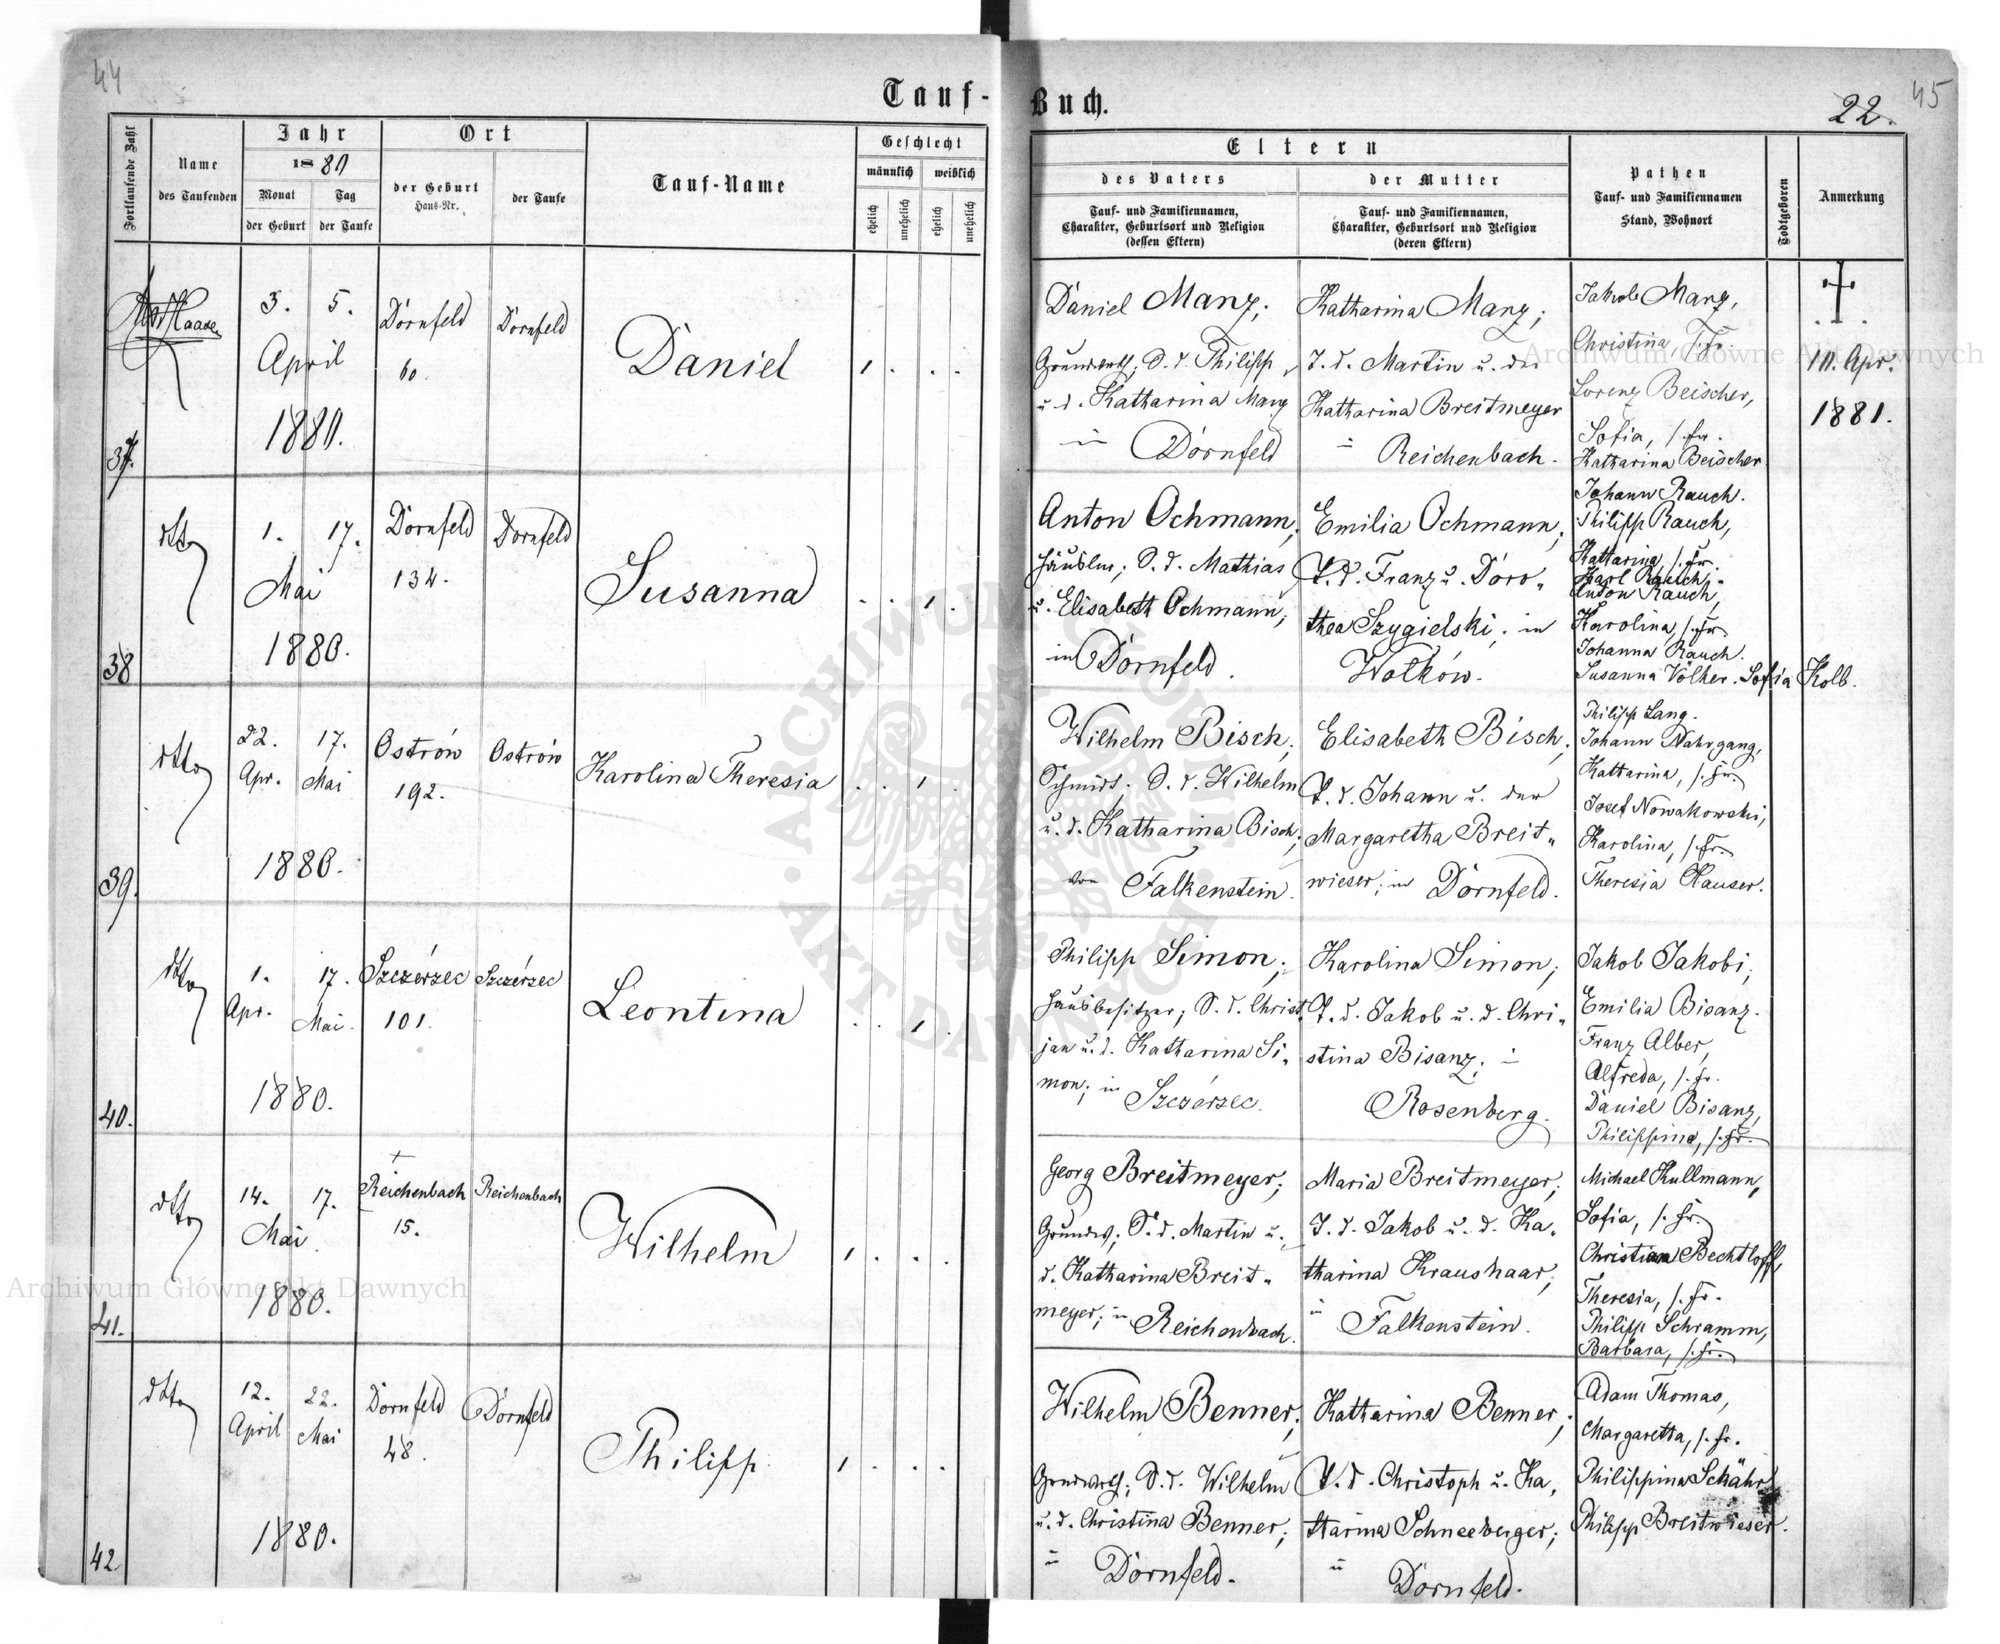 44
Tauf-
Buch.
22.
45
Fortlaufende Zahl
Name
des Taufenden
Jahr
1880
Monat
der Geburt
Tag
der Taufe
Ort
der Geburt
Haus-Nr.
der Taufe
Tauf-Name
Geschlecht
männlich
weiblich
ehelich
unehelich
ehelich
unehelich
Eltern
des Vaters
Tauf- und Familiennamen,
Charakter, Geburtsort und Religion
(dessen Eltern)
der Mutter
Tauf- und Familiennamen,
Charakter, Geburtsort und Religion
(deren Eltern)
Pathen
Tauf- und Familiennamen
Stand, Wohnort
Todtgeboren
Anmerkung
37.
Haase
3. 5.
April
1880.
Dörnfeld
60.
Dörnfeld
Daniel
1 . . .
Daniel Manz;
Grundwth; S. d. Philipp
u. d. Katharina Manz
in Dörnfeld
Katharina Manz;
T. d. Martin u. der
Katharina Breitmeyer
in Reichenbach.
Jakob Manz,
Christina, s. Fr.
Lorenz Beischer,
Sofia, s. Fr.
Katharina Beischer
10. Apr.
1881.
38
dtto
1. 17.
Mai
1880.
Dörnfeld
134.
Dornfeld
Susanna
. . 1 .
Anton Ochmann,
Häusler; S. d. Mathias
u. Elisabeth Ochmann;
in Dörnfeld.
Emilia Ochmann;
T. d. Franz u. Doro-
thea Szygielski; in
Wołków.
Johann Rauch.
Philipp Rauch,
Katharina, s. Fr.
Karl Rauch,
Anton Rauch,
Karolina, s. Fr.
Johanna Rauch.
Susanna Völker. Sofia Kolb.
39.
dtto
22. 17.
Apr. Mai
1880.
Ostrów
192.
Ostrów
Karolina Theresia
. . 1 .
Wilhelm Bisch,
Schmidt; S. d. Wilhelm
u. d. Katharina Bisch;
von Falkenstein.
Elisabeth Bisch;
T. d. Johann u. der
Margaretha Breit-
wieser; in Dörnfeld.
Philipp Lang.
Johann Nahrgang,
Katharina, s. Fr.
Josef Nowakowski,
Karolina, s. Fr.
Theresia Hauser.
40.
dtto
1. 17.
Apr. Mai.
1880.
Szczérzec
101.
Szczérzec
Leontina
. . 1 .
Philipp Simon;
Hausbesitzer; S. d. Christ
jan u. d. Katharina Si-
mon; in Szczérzec.
Karolina Simon;
T. d. Jakob u. d. Chri-
stina Bisanz; in
Rosenberg.
Jakob Jakobi,
Emilia Bisanz.
Franz Alber,
Alfreda, s. Fr.
Daniel Bisanz,
Philippina, s. Fr.
41.
dtto
14. 17.
Mai
1880.
Reichenbach
15.
Reichenbach
Wilhelm
1 . . .
Georg Breitmeyer;
Grundw; S. d. Martin u.
d. Katharina Breit-
meyer; in Reichenbach.
Maria Breitmeyer;
T. d. Jakob u. d. Ka-
tharina Kraushaar;
in Falkenstein.
Michael Kullmann,
Sofia, s. Fr.
Christian Bechtloff,
Theresia, s. Fr.
Philipp Schramm,
Barbara, s. Fr.
42
dtto
12. 22.
April Mai
1880.
Dornfeld
48.
Dornfeld
Philipp
1 . . .
Wilhelm Benner;
Grundwth; S. d. Wilhelm
u. d. Christina Benner;
in Dörnfeld.
Katharina Benner;
T. d. Christoph u. Ka-
tharina Schneeberger;
in Dornfeld.
Adam Thomas,
Margaretta, s. Fr.
Philippina Schähr
Philipp Breitwieser.
Archiwum Główne Akt Dawnych
Archiwum Główne Akt Dawnych